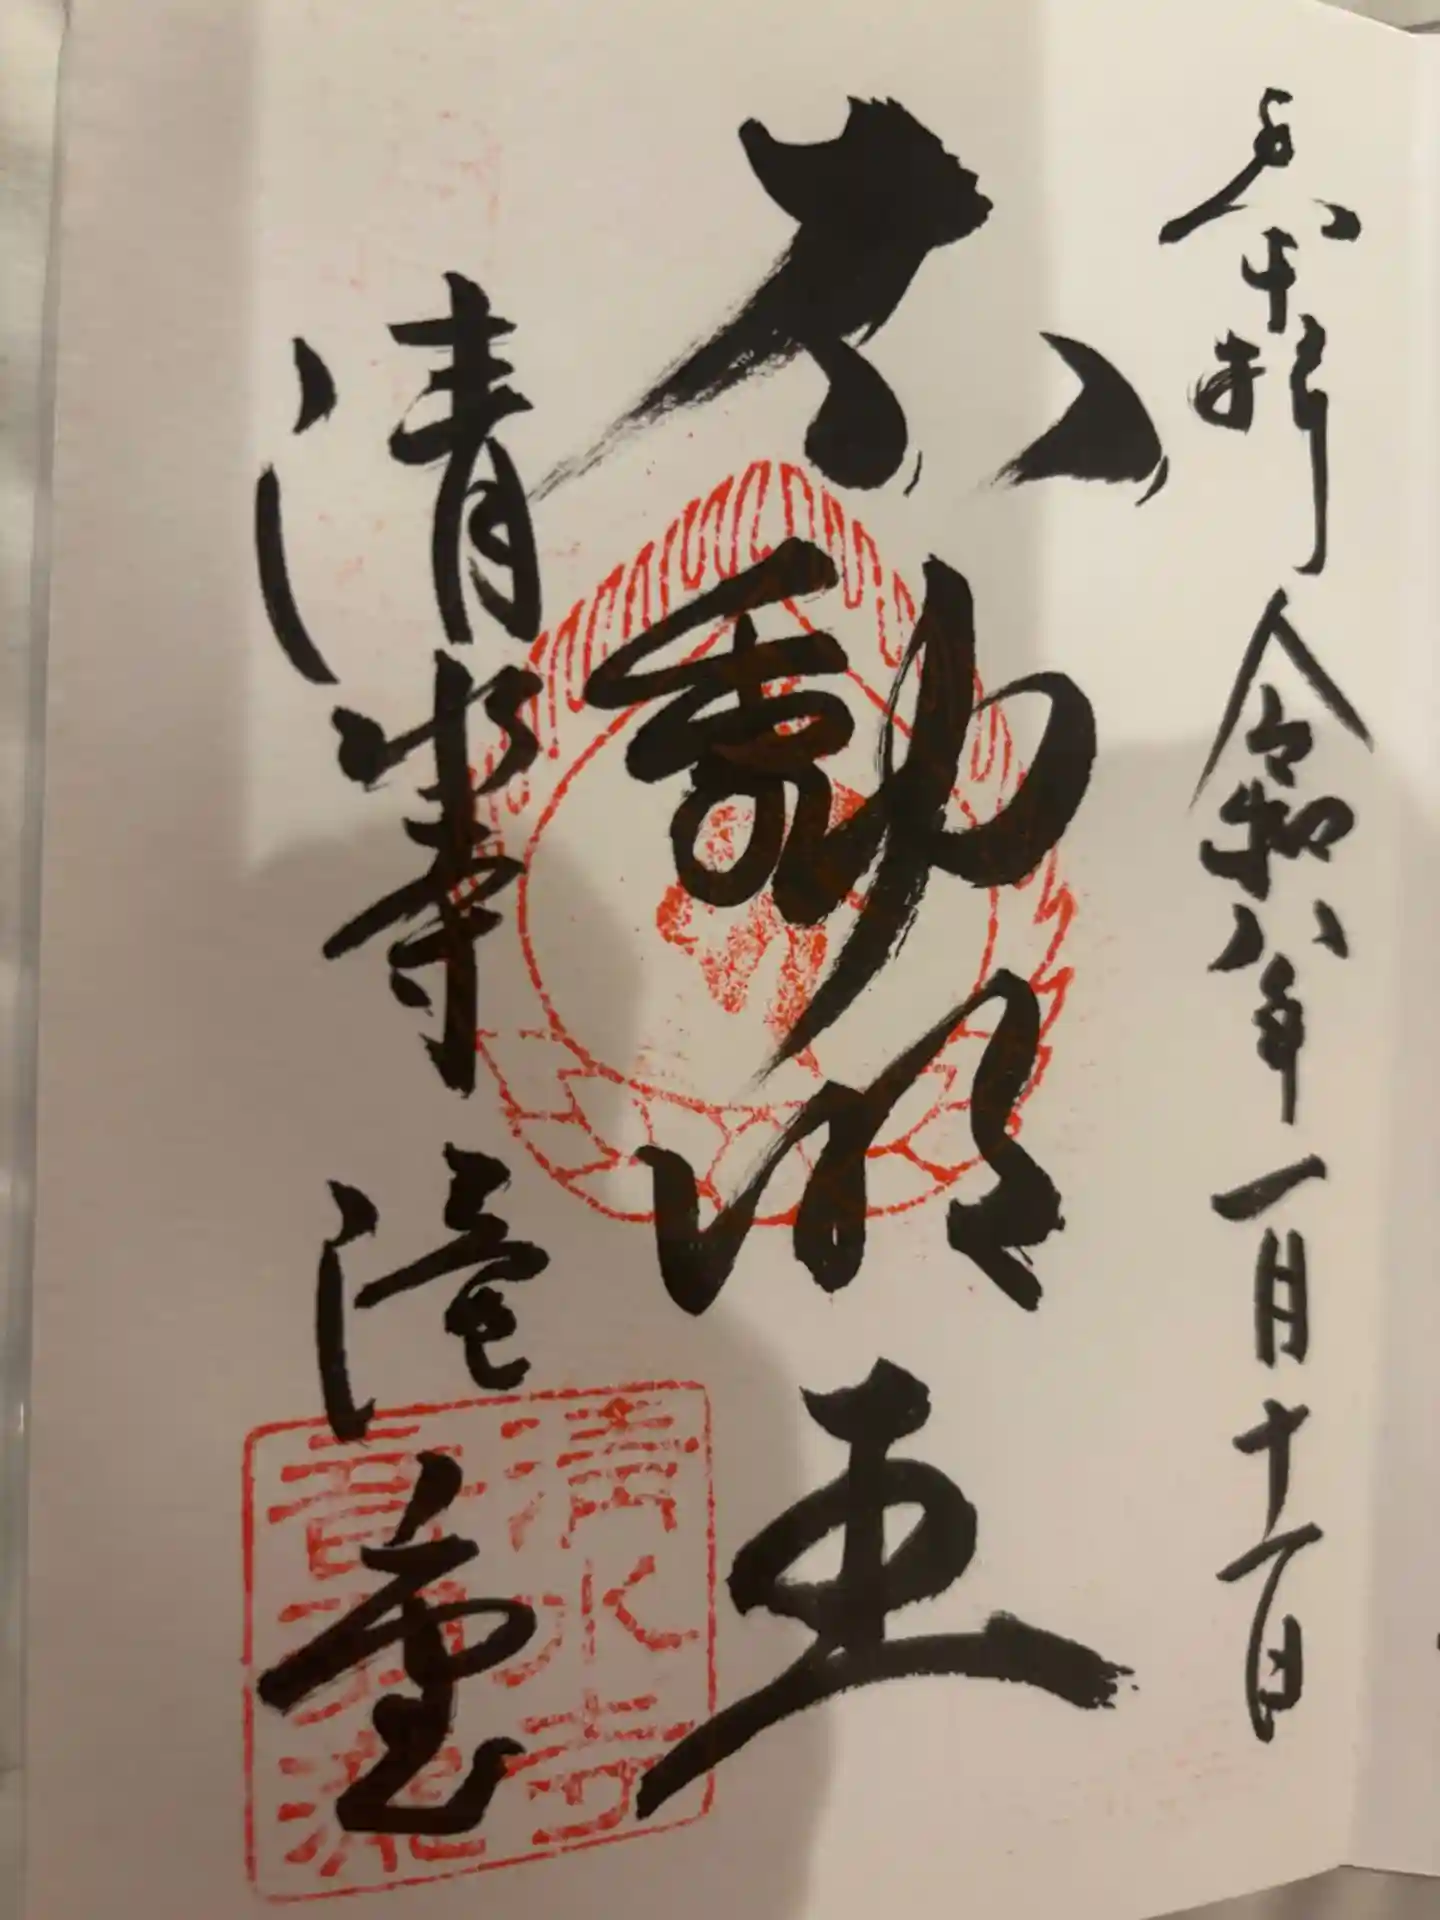 奉拝 令和八年一月十一日
不動明王
清水寺 滝堂
清水寺
音羽